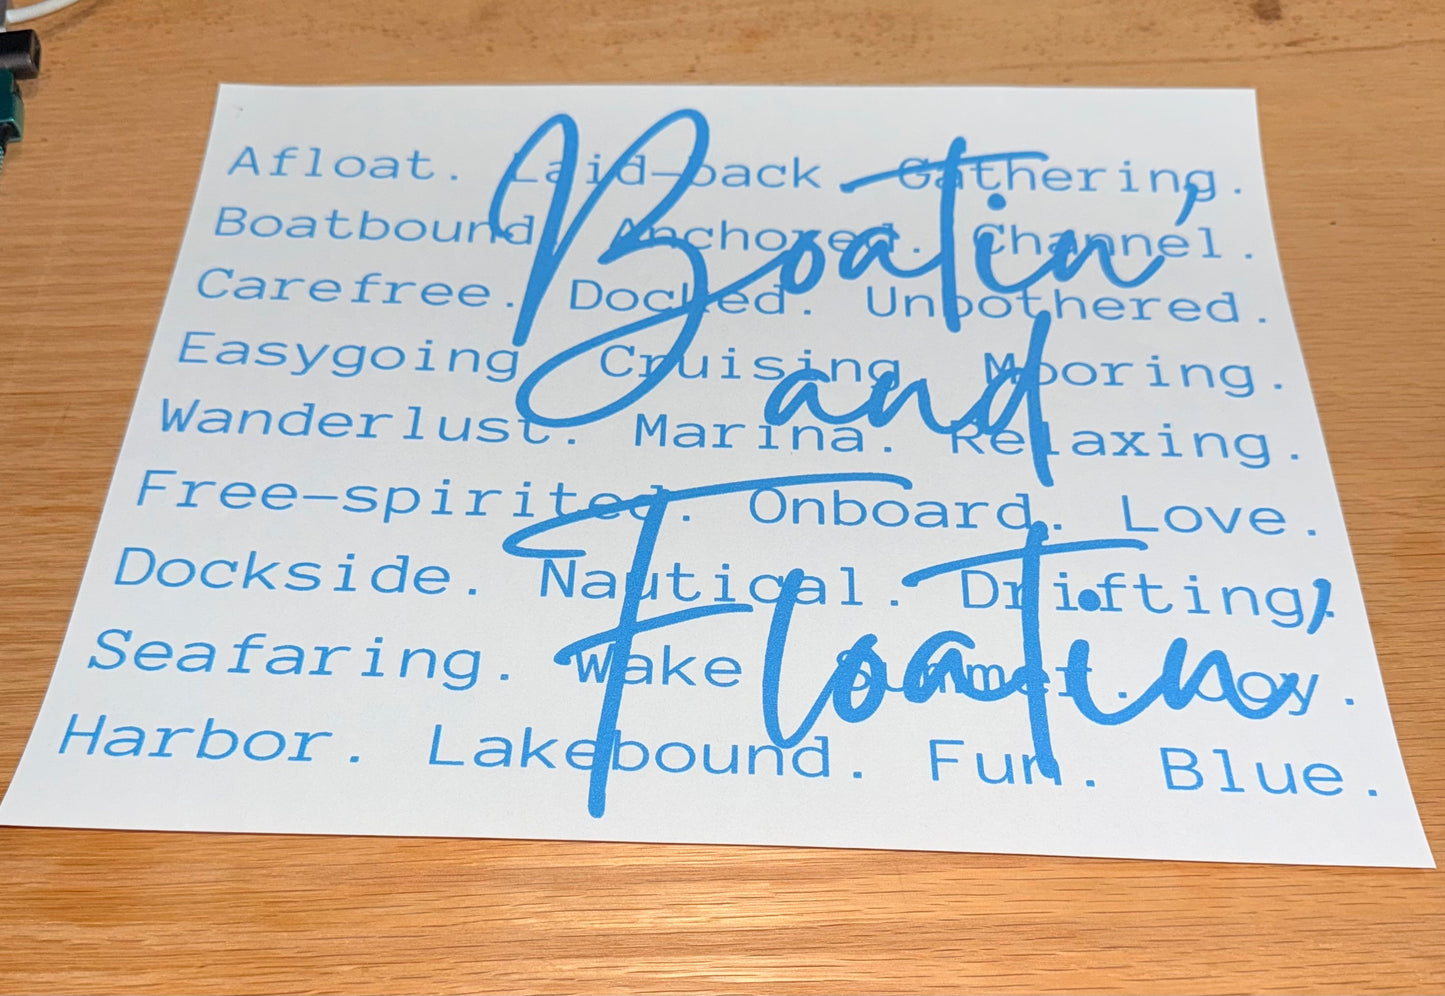 Afloat. Laid-back. Gathering.
Boatbound. Anchored. Channel.
Carefree. Docked. Unbothered.
Easygoing. Cruising. Mooring.
Wanderlust. Marina. Relaxing.
Free-spirited. Onboard. Love.
Dockside. Nautical. Drifting.
Seafaring. Wake. Summer. Joy.
Harbor. Lakebound. Fun. Blue.
Boatin'
and
Floatin'